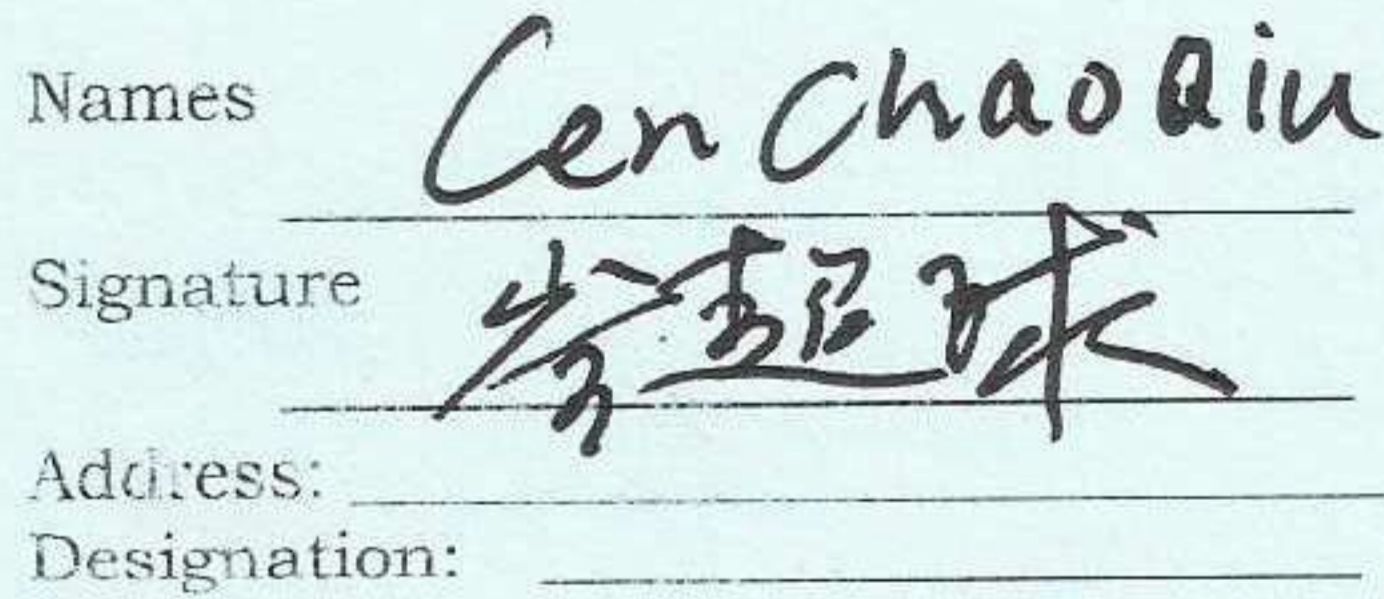 Names Cen Chao Qiu
Signature 岑超球
Address:
Designation: